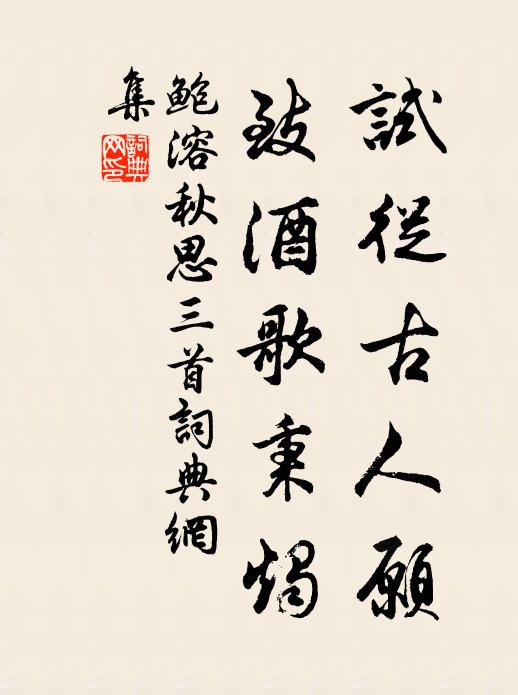 試從古人願
致酒歌秉燭
鮑溶秋思三首詞典網
集
詞典網印